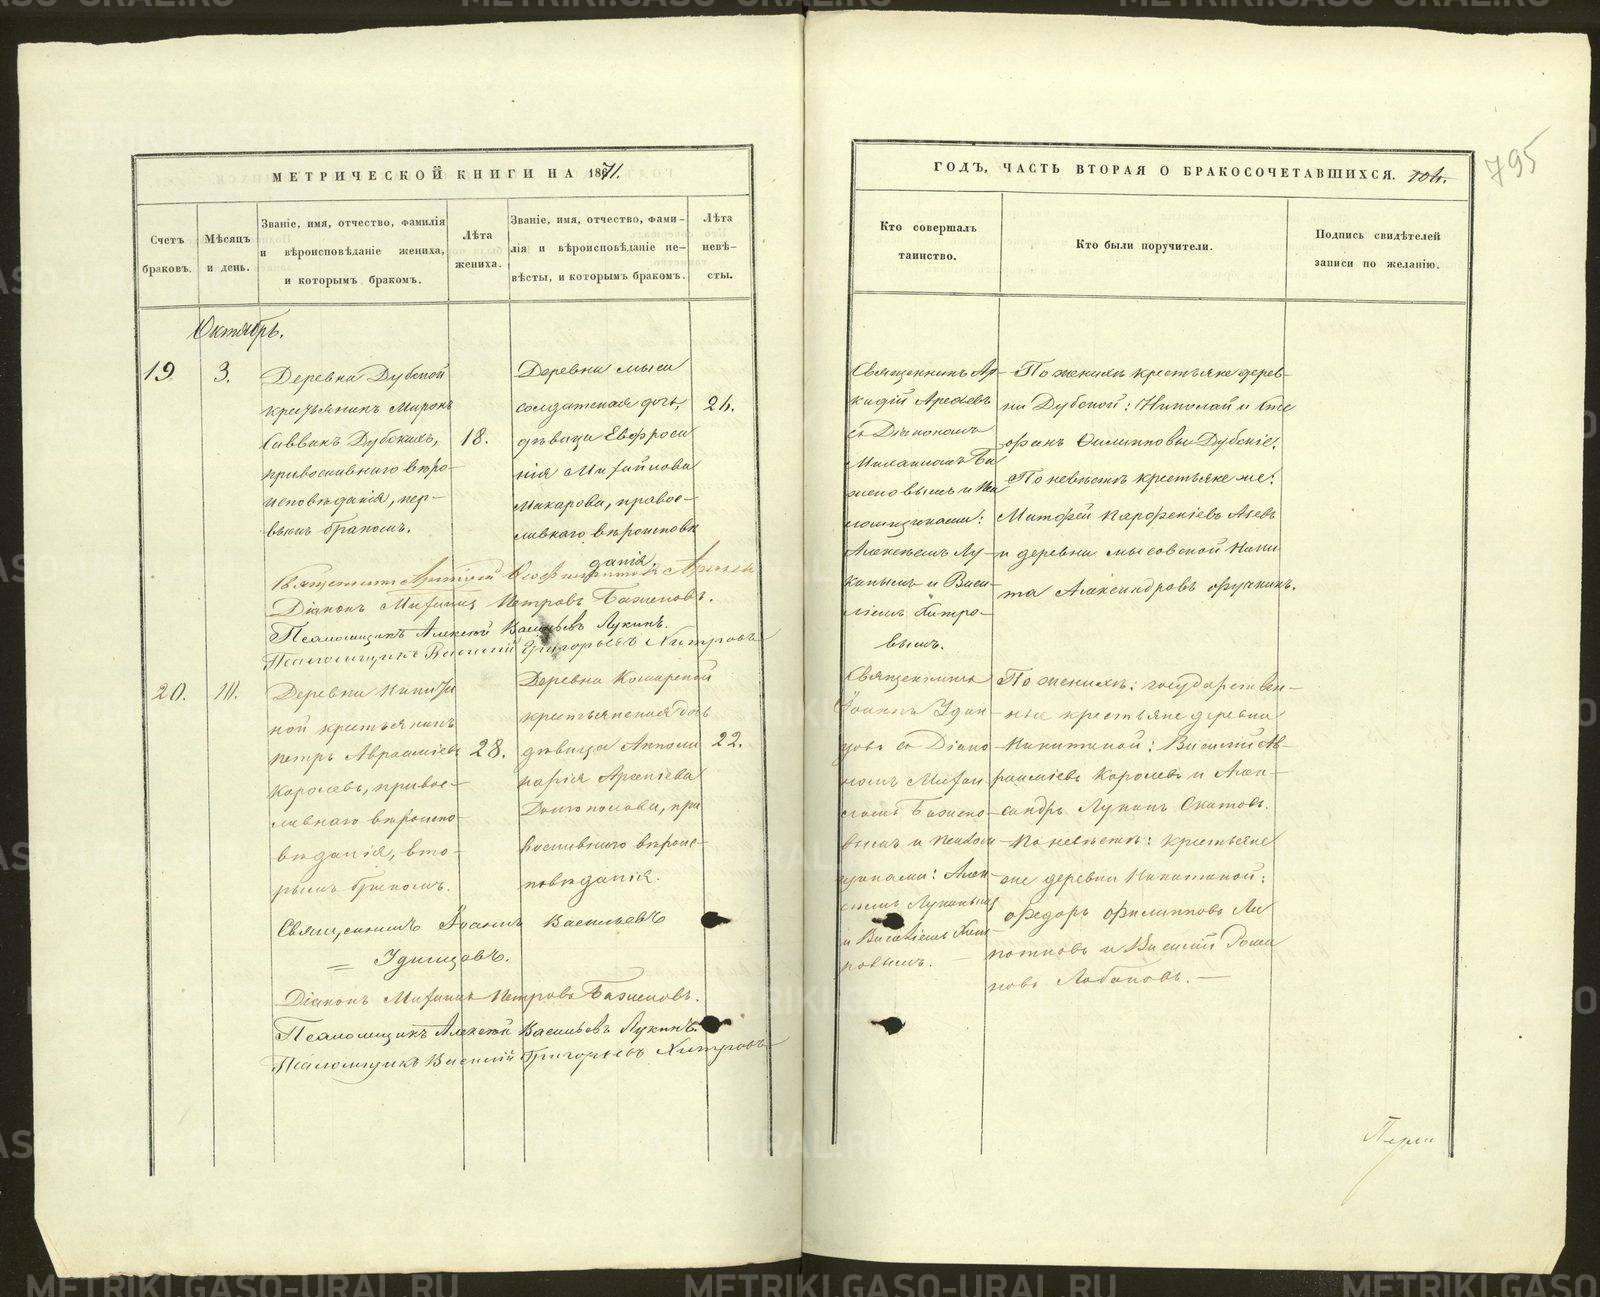 МЕТРИЧЕСКОЙ КНИГИ НА 1871.
Счетъ браковъ.
Мѣсяцъ и день.
Званіе, имя, отчество, фамилія и вѣроисповѣданіе жениха, и которымъ бракомъ.
Лѣта жениха.
Званіе, имя, отчество, фамилія и вѣроисповѣданіе невѣсты, и которымъ бракомъ.
Лѣта невѣсты.
Октябрь.
19
3.
Деревни Дубской
крестьянинъ Миронъ
Саввинъ Дубскихъ,
православнаго вѣро-
исповѣданія, пер-
вымъ бракомъ.
18.
Деревни Мыса
солдатская дочь,
дѣвица Евфроси
нія Михайлова
Макарова, правос-
лавнаго вѣроисповѣ
данія.
Діаконъ Петровъ Баженовъ.
Псаломщикъ Алексѣй Васильевъ Лукинъ.
Псаломщикъ Василій Григорьевъ Хитровъ
20.
10.
Деревни Никити
ной крестьянинъ
Петръ Аврааміевъ
Королевъ, правос-
лавнаго вѣроиспо-
вѣданія, вто-
рымъ бракомъ.
28.
Деревни
крестьянская дочь
дѣвица Аполли
нарія
Долгополова, пра
вославнаго вѣроис-
повѣданія.
22.
Священникъ Іоаннъ Васильевъ
Удинцовъ.
Діаконъ Петровъ Баженовъ.
Псаломщикъ Алексѣй Васильевъ Лукинъ.
Псаломщикъ Василій Григорьевъ Хитровъ
ГОДЪ, ЧАСТЬ ВТОРАЯ О БРАКОСОЧЕТАВШИХСЯ.
795
Кто совершалъ таинство.
Кто были поручители.
Подпись свидѣтелей записи по желанію.
Священникъ Ар-
кадій
съ Діакономъ
Ба
женовымъ и Пса
ломщиками:
Алексѣемъ Лу-
кинымъ и Васи-
ліемъ Хитро-
вымъ.
По женихѣ крестьяне дерев-
ни Дубской: Николай и Сте
фанъ Филипповы Дубскіе.
По невѣстѣ крестьяне же:
и деревни Мысовской Ники
та Александровъ
Священникъ
Іоаннъ Удин-
цовъ съ Діако
номъ
Бажено-
вымъ и Псалом
щиками: Алек-
сѣемъ Лукинымъ
и Василіемъ Хит-
ровымъ.
По женихѣ: государствен-
ные крестьяне деревни
Никитиной: Василій Ав-
рааміевъ Королевъ и Алек-
сандръ Лукинъ Скатовъ.
По невѣстѣ: крестьяне
же деревни Никитиной:
Федоръ Филипповъ Ли
потковъ и Василій Рома
новъ Лобановъ.
METRIKI.GASO-URAL.RU